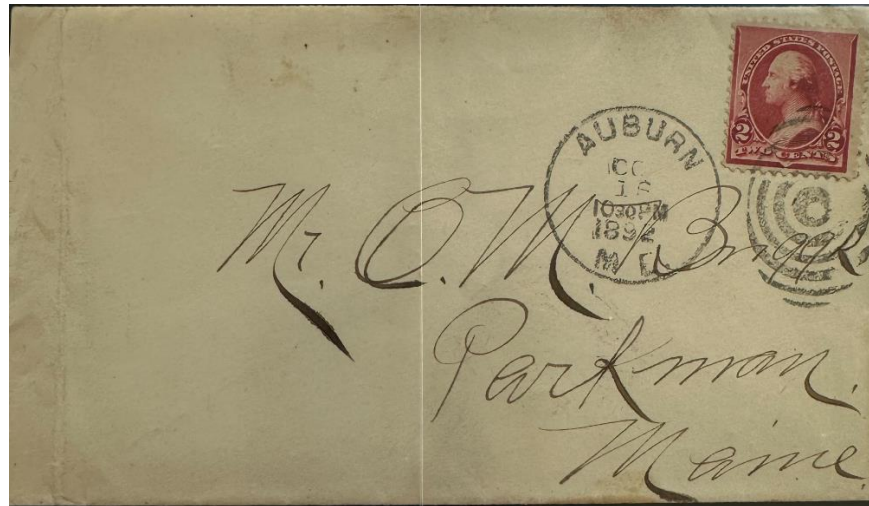 UNITED STATES POSTAGE
2 2
TWO CENTS
AUBURN
OC
18
10 30 PM
1892
ME
Mr. O. M. Briggs
Parkman.
Maine